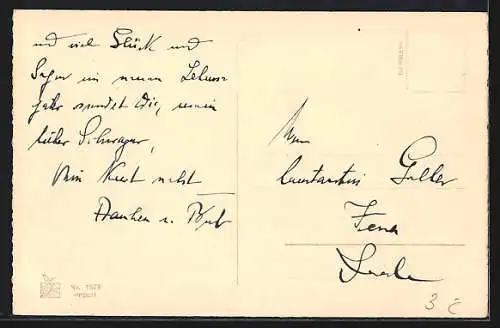 und viel Glück und
Segen im neuen Lebens-
jahr sendet Dir, mein
lieber Schwager,
Dein Kurt nebst
Frauchen u.
Herrn
Constantin
Jena
Saale
No. 1578
3 €